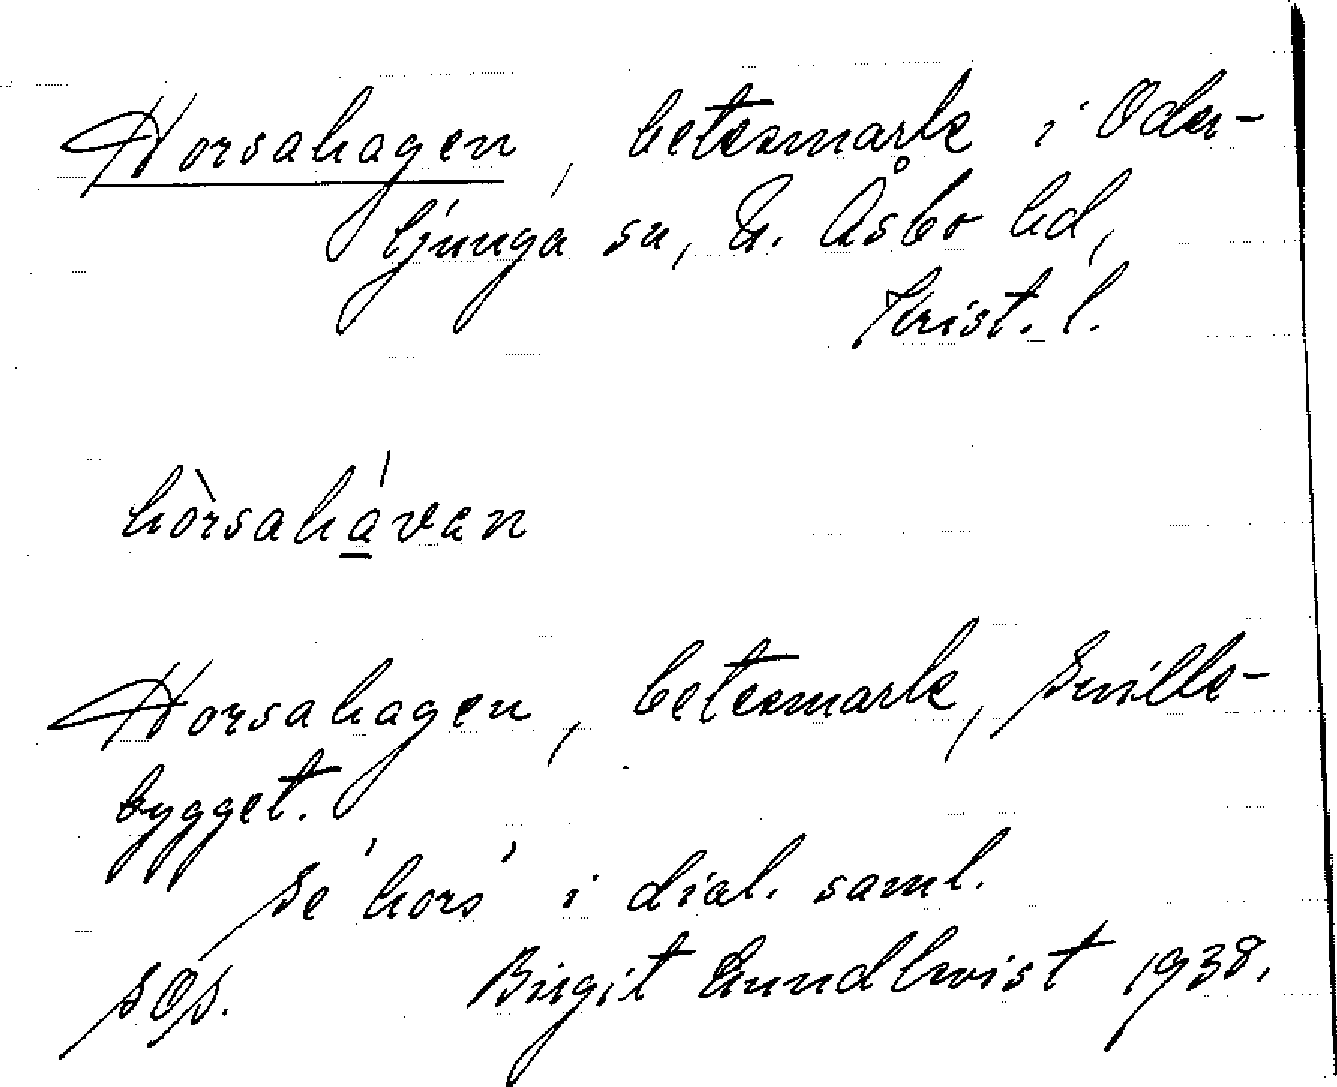 Horsahagen, betesmark i Oder-
ljunga sn, N. Åsbo hd,
Krist. l.
hòrsahávan
Horsahagen, betesmark, Smålls-
bygget.
Se 'hors' i dial. saml.
Birgit Lundkvist 1938.